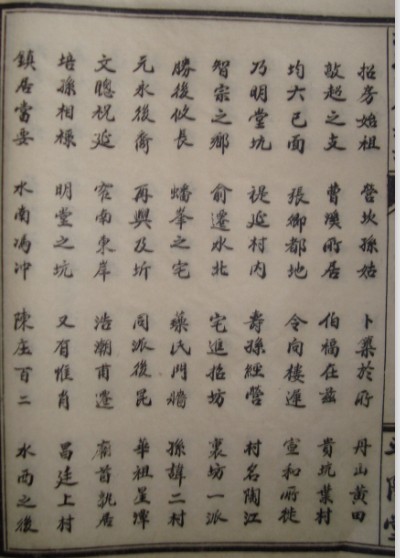 招房始祖 坎孫始 卜築於所 丹山黄田
敦超之支 曹所居 伯福在兹 貴坑葉村
均六已面 張御都地 令向樓蓮 宣和所徙
乃明堂坑 禔延村内 壽孫經營 村名陶江
智宗之鄉 俞遷水北 宅進招坊 裏坊一派
勝後攸長 蟠峯之宅 藥氏門牆 孫諱二村
元永後裔 再興及圻 同派後昆 華祖星潭
文聰祝延 窄南東岸 浩潮甫逢 廟首凱居
培孫相 明堂之坑 又有惟肖 昌廷上村
鎮居當要 水南馮冲 陳庄百二 水西之後